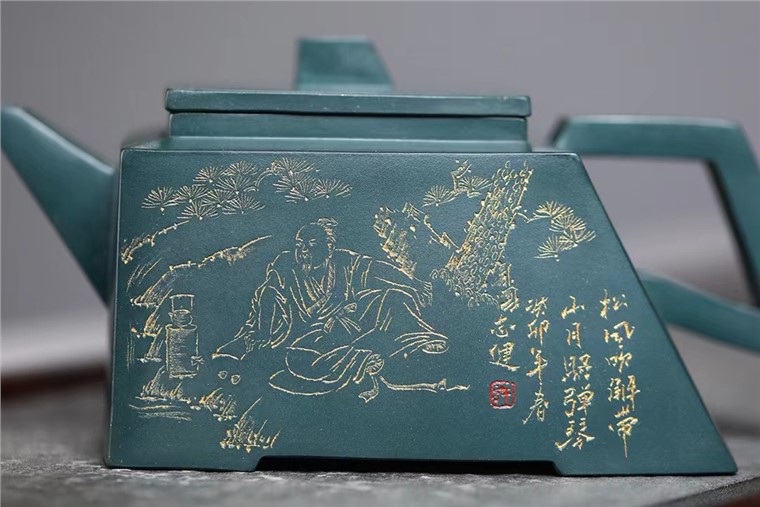 松风吹解带
山月照弹琴
癸卯年春
志建